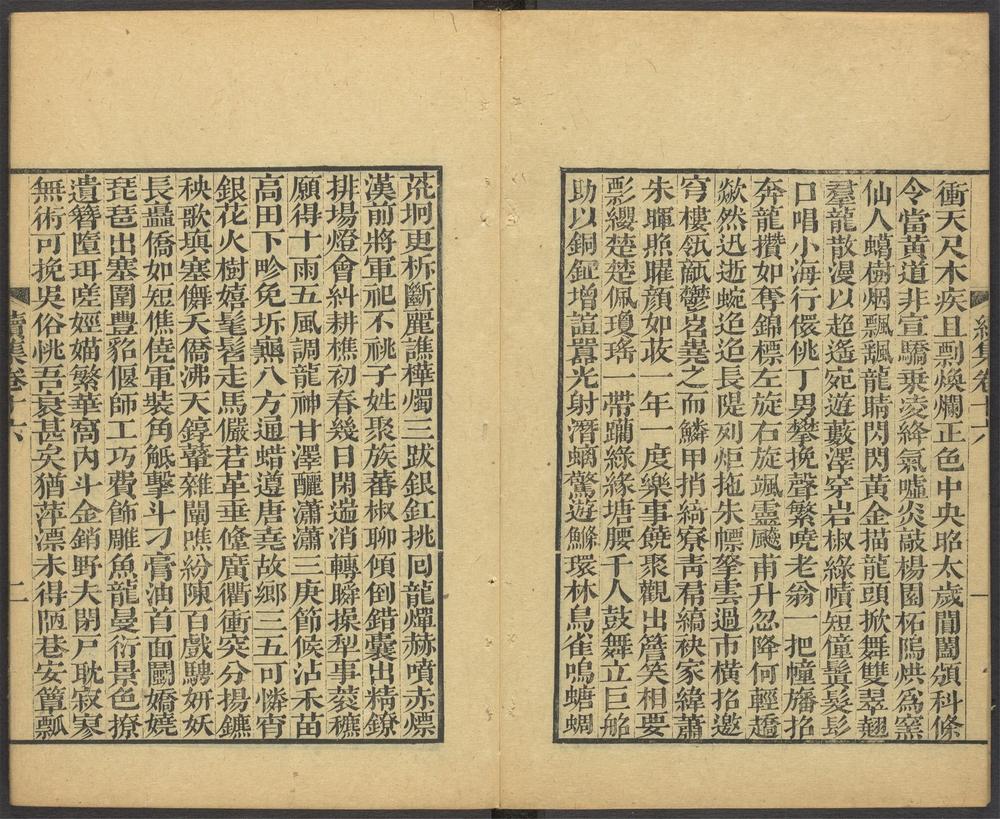 續集卷十六
衝天尺木疾且剽煥爛正色中央昭太歲閶闔頒科條
令當黃道非宣驕乗凌絳氣噓炎敲楊園柘隖烘爲窯
仙人蠵樹烟飄飄龍睛閃閃黃金描龍頭掀舞雙翠翹
羣龍散漫以超遙宛遊藪澤穿岩椒綠幘短僮鬒髮髟
口唱小海行儇佻丁男攀挽聲繁嘵老翁一把幢旛招
奔龍攢如奪錦標左旋右旋颯靈飇甫升忽降何輕趫
歘然迅逝蜿迆迆長隄列炬拖朱幖搴雲過市橫招邀
穹樓瓴甋鬱岧嶤之而鱗甲捎綺寮靑帬縞袂家緯蕭
朱暉照曜顔如荍一年一度樂事饒聚觀出簷笑相要
彯纓楚楚佩瓊瑤一帶躝綠緣塘腰千人鼓舞立巨舩
助以銅鉦增諠囂光射潛蝄驚遊鰷環林鳥雀鳴螗蜩
荒坰更柝斷麗譙樺燭三跋銀釭挑回龍燀赫噴赤熛
漢前將軍祀不祧子姓聚族蕃椒聊傾倒錯囊出精鐐
排場燈會糾耕樵初春幾日閑遄消轉瞬操犁事蔉穮
願得十雨五風調龍神甘澤釃瀟瀟三庚節候沾禾苗
高田下畛免坼𪚰八方通蜡遵唐堯故鄉三五可憐宵
銀花火樹嬉髦髫走馬儼若革垂鞗廣衢衝突分揚鑣
秧歌塡塞儛天僑沸天錞鼙雜闐噍紛陳百戲騁妍妖
長嚞僑如短僬僥軍裝角觝擊斗刁膏油首面鬭嬌嬈
琵琶出塞圍豐貂偃師工巧費飾雕魚龍曼衍景色撩
遺簪墮珥嗟婬媌繁華窩內斗金銷野夫閉戸耽寂寥
無術可挽吳俗恌吾衰甚矣猶萍漂未得陋巷安簞瓢
續集卷十六
二